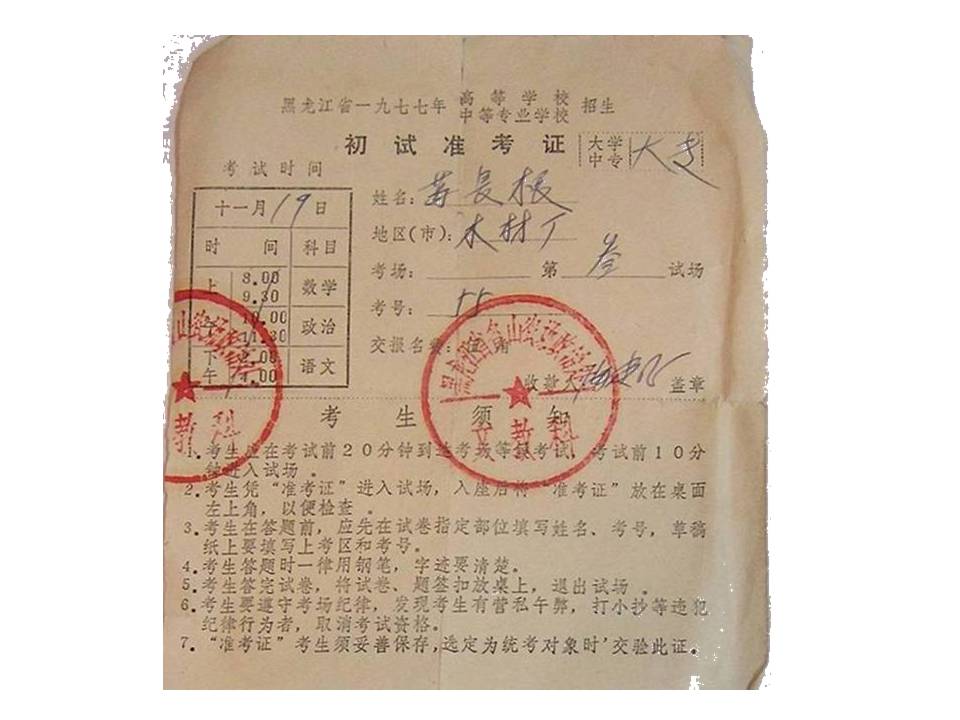 黑龙江省一九七七年 高等学校 招生
中等专业学校
初试准考证 大学 大专
中专
考试时间
十一月19日
时间 科目
上 8.00 9.30 数学
午 10.00 11.30 政治
下午 2.00 4.00 语文
姓名: 长根
地区(市): 木材厂
考场: 第 叁 试场
考号: 55
交报名费: 伍角
收款人 盖章
文教科
教科
考生须知
1.考生应在考试前20分钟到达考场等候考试,考试前10分
钟进入试场。
2.考生凭“准考证”进入试场,入座后将“准考证”放在桌面
左上角,以便检查。
3.考生在答题前,应先在试卷指定部位填写姓名、考号,草稿
纸上要填写上考区和考号。
4.考生答题时一律用钢笔,字迹要清楚。
5.考生答完试卷,将试卷、题签扣放桌上,退出试场。
6.考生要遵守考场纪律,发现考生有营私午弊,打小抄等违犯
纪律行为者,取消考试资格。
7.“准考证”考生须妥善保存,选定为统考对象时'交验此证。